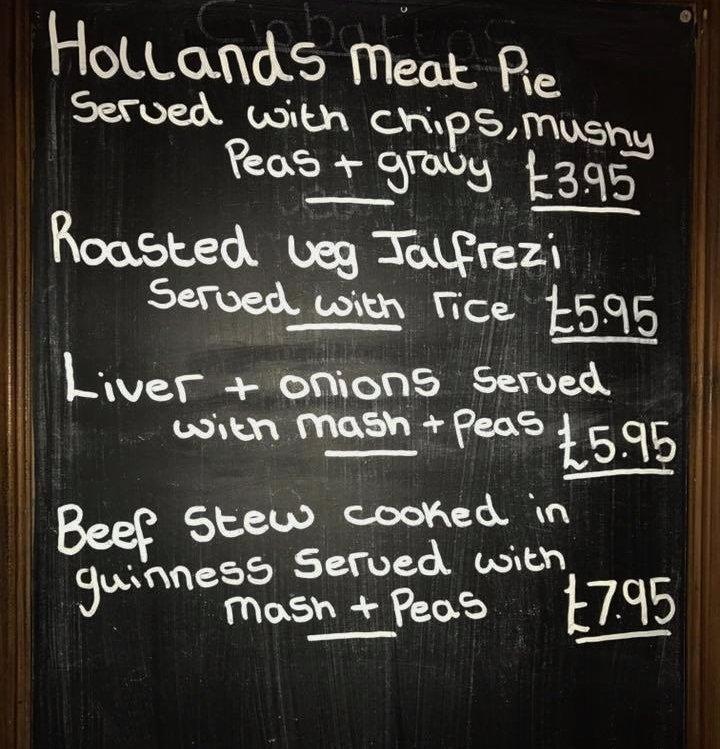 Ciabattas
Hollands Meat Pie
Served with chips, mushy
Peas + gravy £3.95
Roasted veg Jalfrezi
Served with rice £5.95
Liver + onions served
with mash + Peas £5.95
Beef Stew cooked in
guinness Served with
mash + Peas £7.95